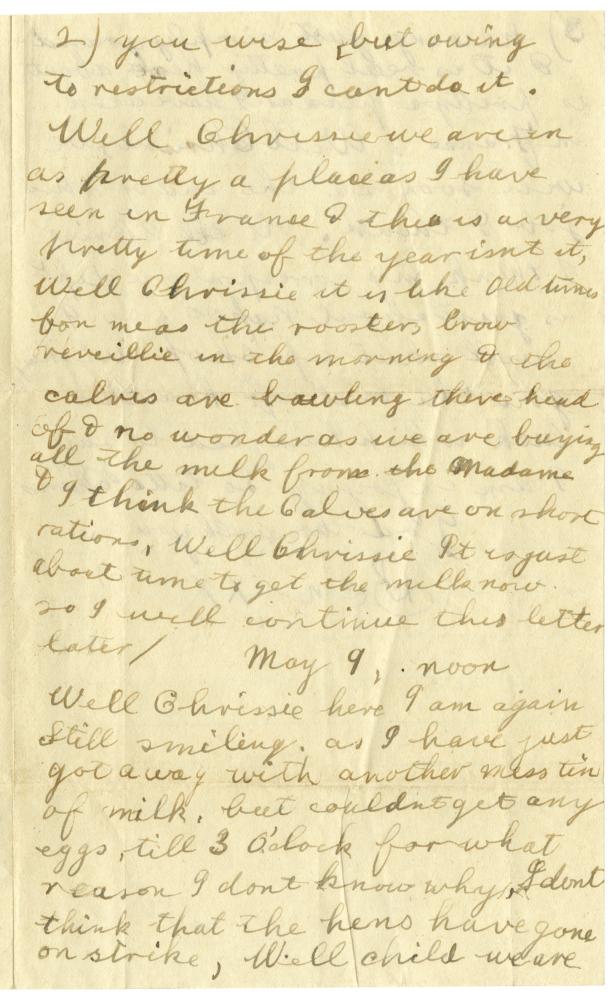 2) you wise, but owing
to restrictions I cant do it.
Well Chrissie we are in
as pretty a place as I have
seen in France & this is a very
pretty time of the year isnt it,
Well Chrissie it is like Old times
for me as the roosters Crow
reveillie in the morning & the
calves are bawling there head
of & no wonder as we are buying
all the milk from the Madame
& I think the Calves are on short
rations, Well Chrissie It is just
about time to get the milk now
so I will continue this letter
later/ May 9, . noon
Well Chrissie here I am again
Still smiling. as I have just
got away with another mess tin
of milk, but couldnt get any
eggs, till 3 O'clock for what
reason I dont know why, I dont
think that the hens have gone
on strike, Well child we are